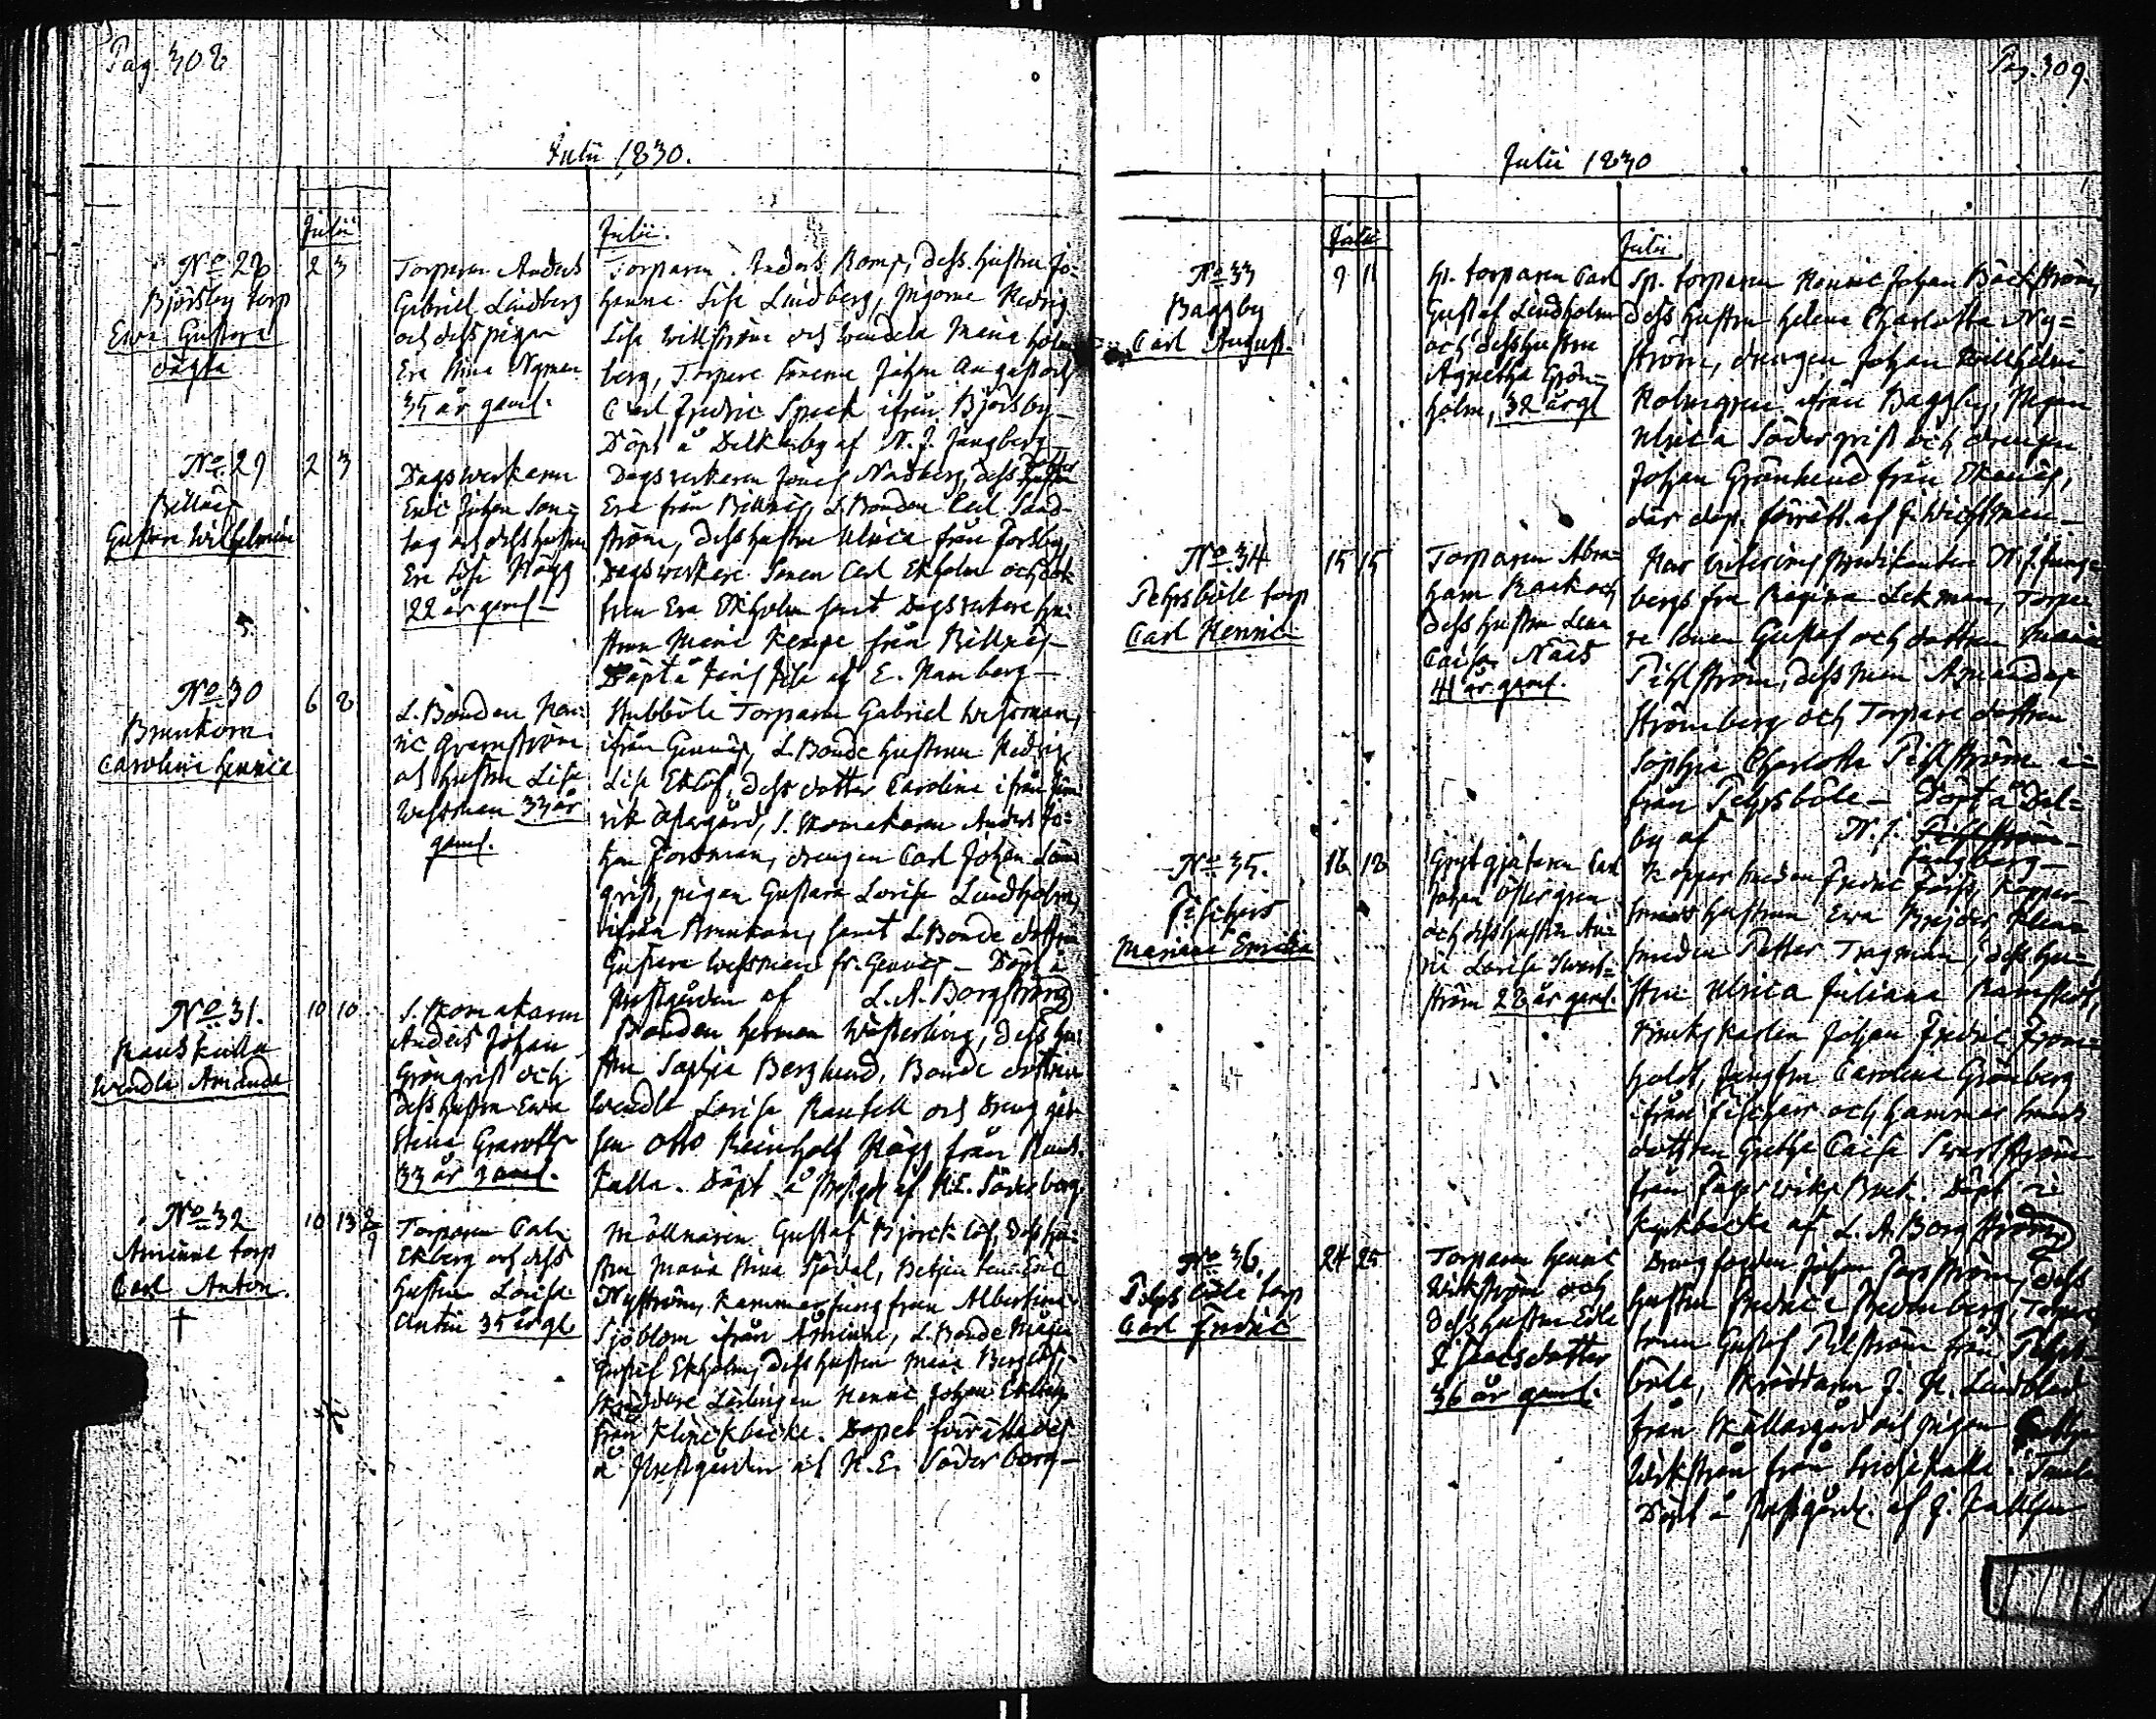 Pag. 308
Julii 1830.
Julii
Julii.
No 28
Björsby torp
Ewa Gustava
oägta
2 3
Torparen Anders
Gabriel Lindberg
och dess pigan
Eva Stina Nyman
35 år gaml.
Torparen Anders Romp, dess hustru Jo=
hanna Lisa Lindberg, pigorne Hedvig
Lisa Willström och Wendela Maria Holm
berg, Torpare sönerne Johan August och
Carl Fredric Speck ifrån Björsby_
Döpt å Delkarby af N. J. Jungberg_
No 29
Billnäs
Gustava Wilhelmina
2 3
Dagsverkaren
Eric Johan Son=
tag och dess hustru
Eva Lisa Hägg
22 år gaml_
Dagsverkaren Jonas Nadberg, dess
Eva från Billnäs, L. Bonden Carl Sand
ström, dess hustru Ulrica från Forsby,
Dagsverkare Sonen Carl Ekholm och dot
tren Eva Ekholm samt Dagsverkare hu
strun Maria Kempe från Billnäs_
Döpt å af E. Ramberg_
No 30
Brunkom
Carolina Henrica
6 8
L. Bonden Hen
ric Qvarnström
och hustru Lisa
Wessman 33 år
gaml.
Stubböle Torparen Gabriel Wessman,
ifrån Gennäs, L. Bonde hustrun Hedvig
Lisa Eklöf, dess dotter Carolina ifrån
vik Östergård, S. skomakaren Anders Jo=
han Forsman, drengen Carl Johan
qvist, pigan Gustava Lovisa Lindholm,
ifrån Brunkom, samt L. Bonde dottren
Gustava Wessman fr. Gennäs_ Döpt å
Prestgården af L. A. Borgström
No 31.
Rankulla
Wendla Amanda
10 10
S. Skomakaren
Anders Johan
Grönqvist och
dess hustru Ewa
Stina Granroth
33 år gaml.
Bonden Herman Westerling, dess hu
stru Sophia Berglund, Bonde dottren
Wendla Lovisa Rantell och Dreng gås
sen Otto Reinholt Hägg från Rank
kulla. Döpt å Prestgd af H. E. Söderberg
No 32
Åminne torp
Carl Anton.
†
10 13 8/9
Torparen Carl
Ekberg och dess
hustru Lovisa
Antin 35 år gl.
Möllnaren Gustaf Björcklöf, dess hu
stru Maria Stina Sjödal, Betjen ten Eric
Nyström, Kammarjungfrun Albertina
Sjöblom ifrån Åminne, L. Bonde Mågen
Gustaf Ekholm, dess hustru Maria Berglöf,
Skräddare Lärlingen Henric Johan Eklund
från Klinckbacka. Dopet förrättades
å Prestgården af H. E. Söderberg_
Pag. 309.
Julii 1830
Julii
Julii
No 33
Baggby
Carl August.
9 11
Sp. torparen Carl
Gustaf Lindholm
och dess hustru
Agnetha Grön=
holm, 32 år gl
Sp. torparen Henric Johan Bäckström,
dess hustru Helena Charlotta Ny=
ström, drengen Johan Willhelm
Holmgren ifrån Baggby, Pigan
Ulrica Söderqvist och drengen
Johan Grönlund från Ekenäs,
där dop. förrätt. af J. Wichtman_
No 34
Pehrsböle torp
Carl Henric
15 15
Torparen Abra=
ham Rank och
dess hustru Lena
Caisa Näls
41 år gaml.
Har Vikarius Predikanten N. J. Jung=
bergs fru Regina Lekman, Torpa
re sonen Gustaf och dottren Maria
Pihlström, dess man Amanda
Strömberg och Torpare dottren
Sophia Charlotta Pihlström i=
från Pehrsböle_ Döpt å Dal=
by af N. J.
Jungberg_
No 35.
Fischers
Mariana Emilia
16 18
Grytgjutaren Carl
Johan Östergren
och dess hustru An=
na Lovisa Swart=
ström 28 år gaml.
Kopparsmeden Fredric Forss, Koppar
smeds hustrun Ewa Brejder, Klen
smeden Petter Tragman, dess hu=
stru Ulrica Juliana Ramstedt,
Brukskarlen Johan Fredric From=
holdt, Jungfru Carolina Grönberg
ifrån Fischers och hammar smeds
dottren Gretha Caisa Swartström
från Fagerwiks Bruk. Döpt i
Kyrkbacka af L. A. Borgström
No 36.
Pehrsböle torp
Carl Fredric
24 25
Torparen Henric
Wikström och
dess hustru Edla
Isacsdotter
36 år gaml.
Dreng fogden Johan Forsström, dess
hustru Fredrica Stedenberg, Torpare
sonen Gustaf Pilström från Pehrs
böle, Skräddaren J. H. Lindblad
från Källargård och pigan
Wikström från
Döpt å Prestgård. af J.